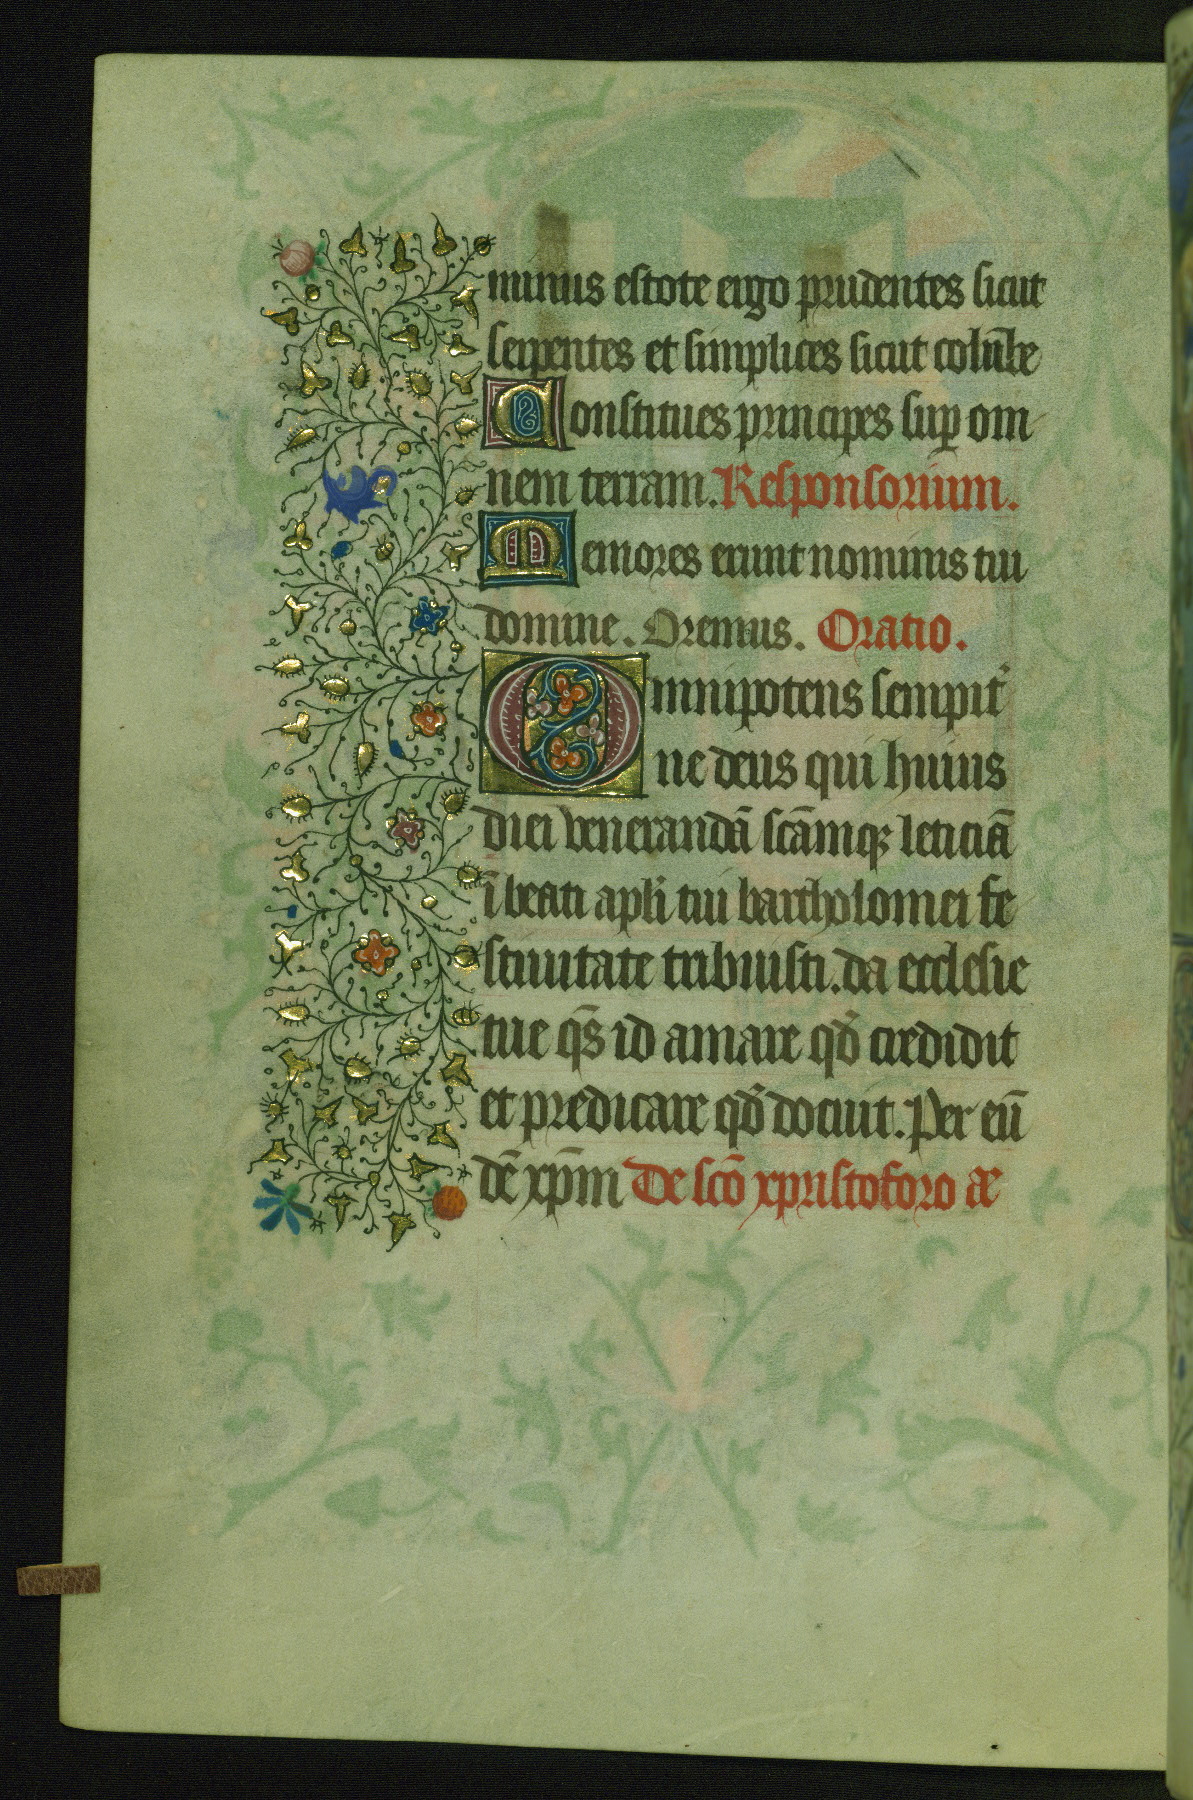 minus estote ergo prudentes sicut
serpentes et simplices sicut colūbe
Constitues principes sup om
nem terram. Responsorium.
Memores erunt nominis tui
domine. Oremus. Oratio.
Omnipotens sempit̉
ne deus qui huius
diei venerandā scāmqꝫ leticiā
ī beati apl̄i tui bartholomei fe
stiuitate tribuisti. da ecclesie
tue qs̄ id amare qd̄ credidit
et predicare qd̄ docuit. Per eū
dē xp̄m De scō xpristoforo